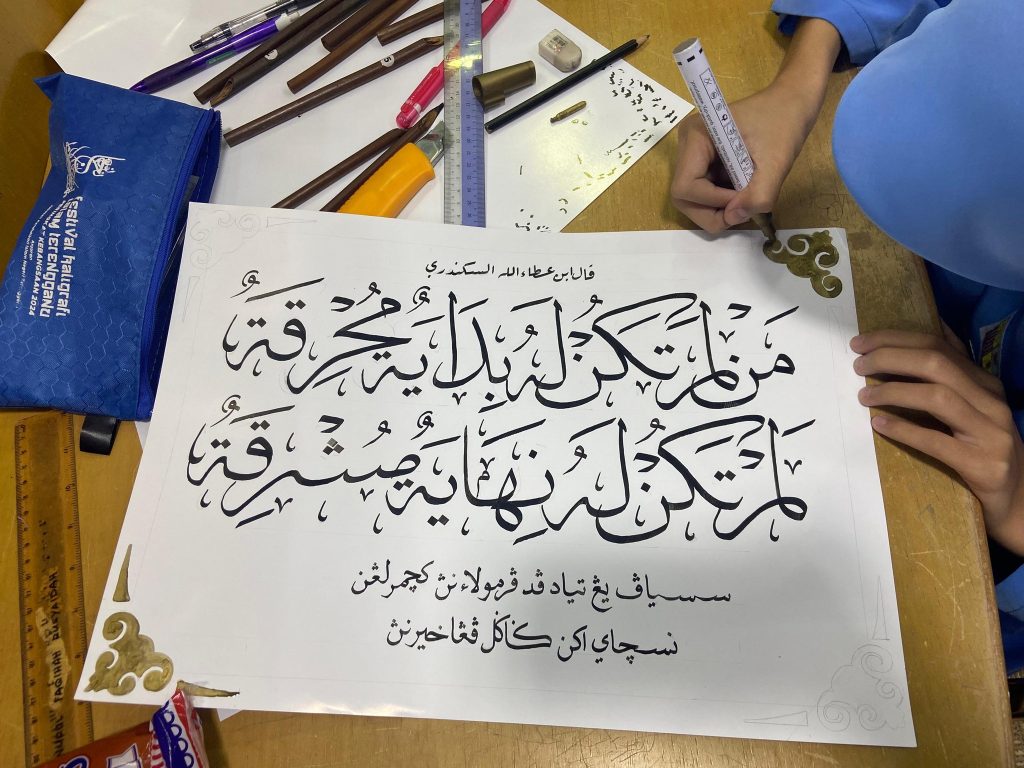 قال ابن عطاء الله السكندري
مَنْ لَمْ تَكُنْ لَهُ بِدَايَةٌ مُحْرِقَةٌ
لَمْ تَكُنْ لَهُ نِهَايَةٌ مُشْرِقَةٌ
سسياڤ يڠ تياد ڤد ڤرمولاءنڽ كچمرلڠن
نسچاي اكن ݢاݢل ڤڠاخيرنڽ
festival kaligrafi
terengganu
KEBANGSAAN 2024
5